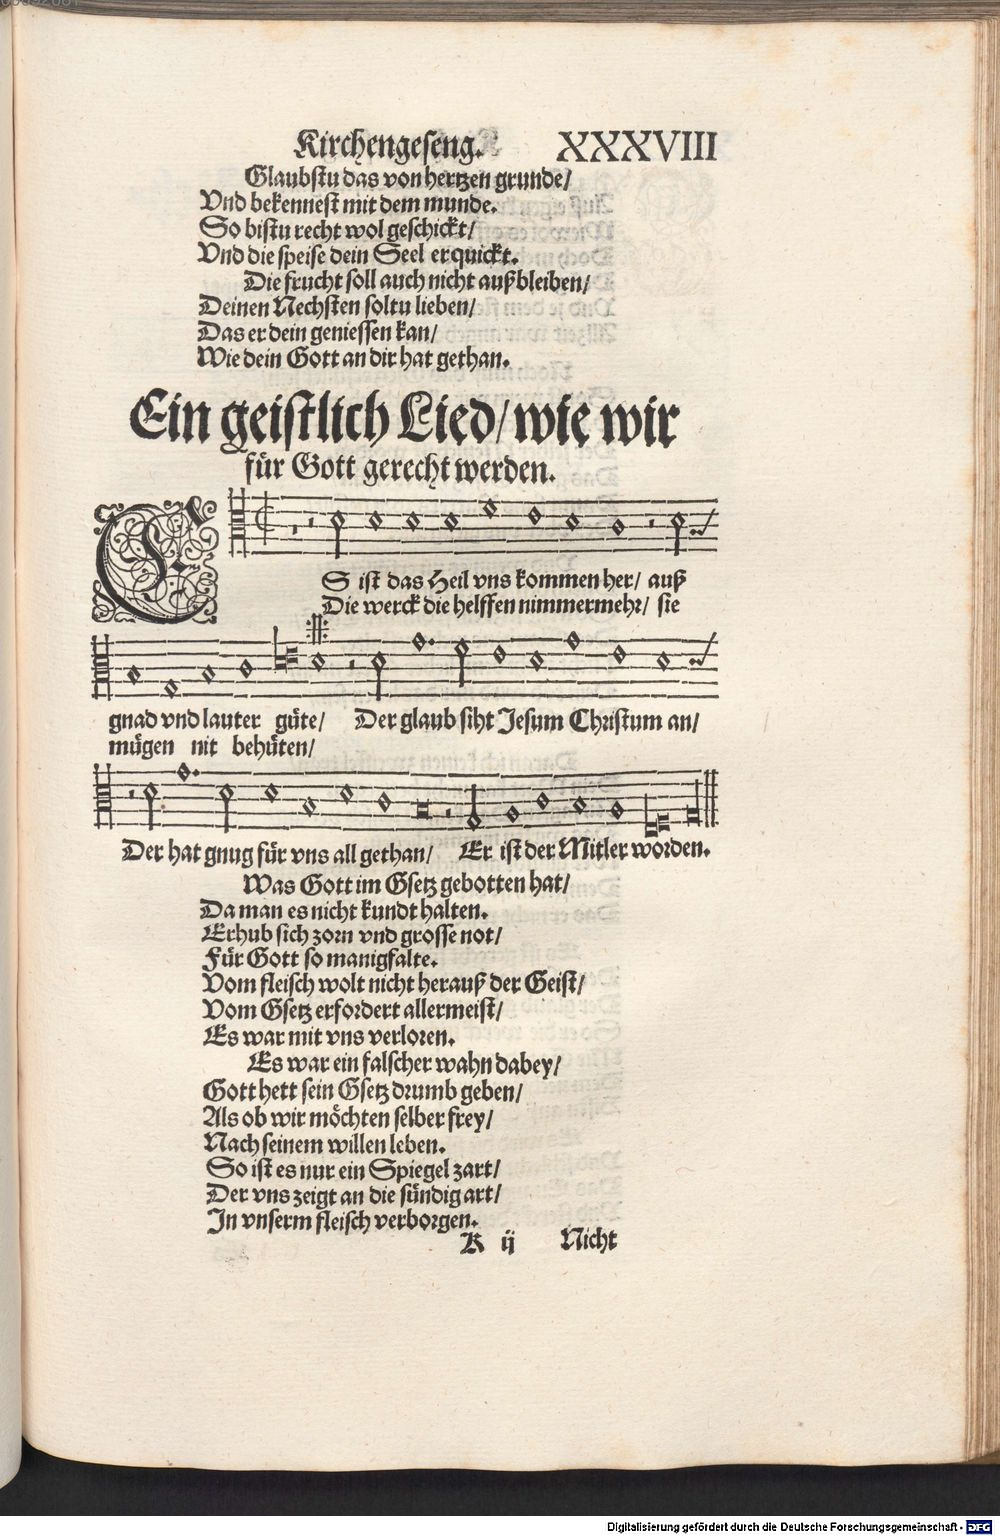 Kirchengeseng. XXXVIII
Glaubstu das von hertzen grunde/
Vnd bekennest mit dem munde.
So bistu recht wol geschickt/
Vnd die speise dein Seel erquickt.
Die frucht soll auch nicht außbleiben/
Deinen Nechsten soltu lieben/
Das er dein geniessen kan/
Wie dein Gott an dir hat gethan.
Ein geistlich Lied/ wie wir
für Gott gerecht werden.
ES ist das Heil vns kommen her/ auß
Die werck die helffen nimmermehr/ sie
gnad vnd lauter güte/ Der glaub siht Jesum Christum an/
mügen nit behüten/
Der hat gnug für vns all gethan/ Er ist der Mitler worden.
Was Gott im Gsetz gebotten hat/
Da man es nicht kundt halten.
Erhub sich zorn vnd grosse not/
Für Gott so manigfalte.
Vom fleisch wolt nicht herauß der Geist/
Vom Gsetz erfordert allermeist/
Es war mit vns verloren.
Es war ein falscher wahn dabey/
Gott hett sein Gsetz drumb geben/
Als ob wir möchten selber frey/
Nach seinem willen leben.
So ist es nur ein Spiegel zart/
Der vns zeigt an die sündig art/
In vnserm fleisch verborgen.
K ij Nicht
Digitalisierung gefördert durch die Deutsche Forschungsgemeinschaft - DFG